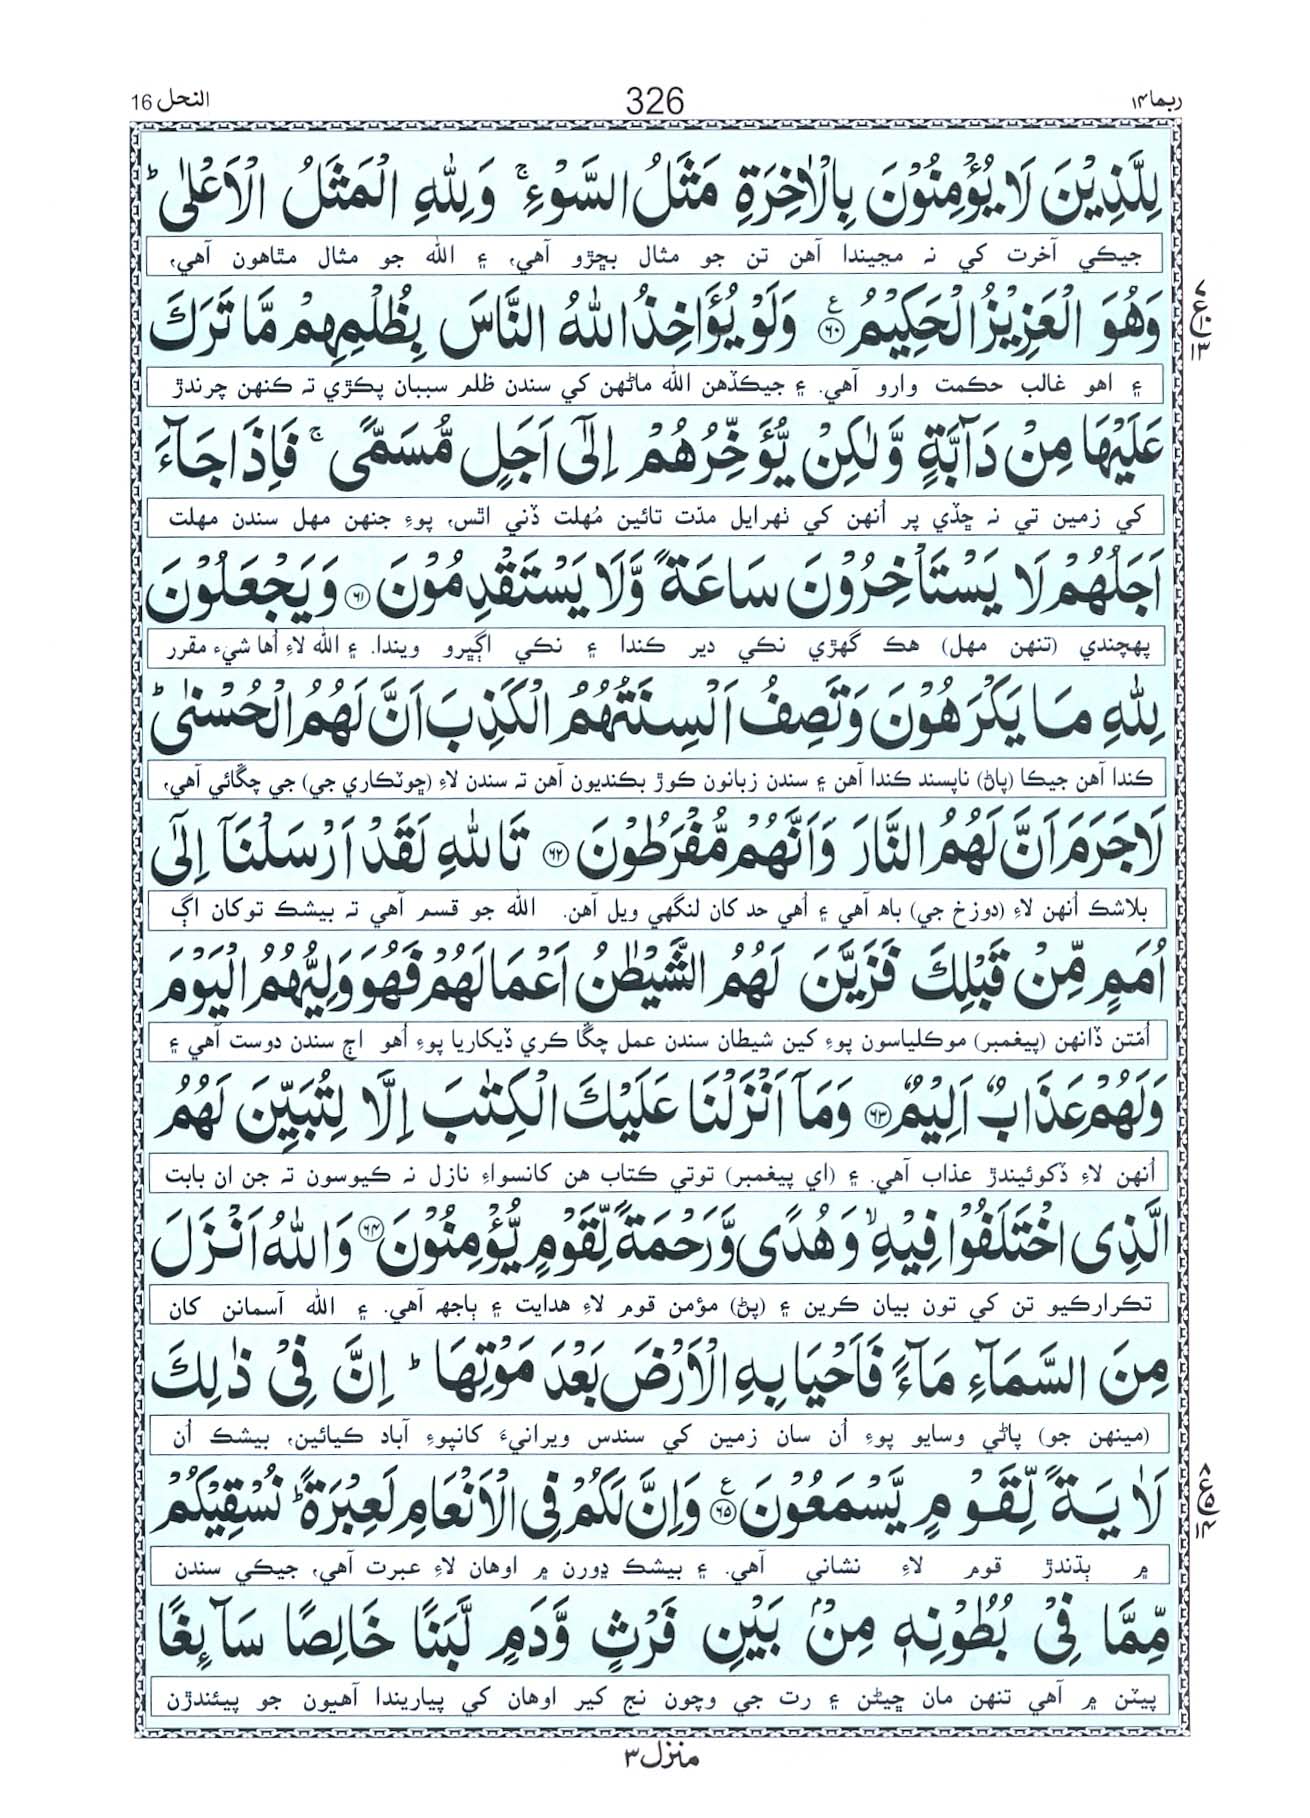 ربما۱۴ 326 النحل 16
لِلَّذِيْنَ لَا يُؤْمِنُوْنَ بِالْاٰخِرَةِ مَثَلُ السَّوْءِ ۚ وَلِلّٰهِ الْمَثَلُ الْاَعْلٰى ؕ
جيڪي آخرت کي نہ مڃيندا آهن تن جو مثال بڇڙو آهي، ۽ الله جو مثال مٿاهون آهي،
وَهُوَ الْعَزِيْزُ الْحَكِيْمُ ﴿۶۰﴾ ع وَلَوْ يُؤَاخِذُ اللّٰهُ النَّاسَ بِظُلْمِهِمْ مَّا تَرَكَ
۽ اهو غالب حڪمت وارو آهي. ۽ جيڪڏهن الله ماڻهن کي سندن ظلم سببان پڪڙي تہ ڪنهن چرندڙ
عَلَيْهَا مِنْ دَآبَّةٍ وَّلٰكِنْ يُّؤَخِّرُهُمْ اِلٰٓى اَجَلٍ مُّسَمًّى ۚ فَاِذَا جَآءَ
کي زمين تي نہ ڇڏي پر اُنهن کي ٺهرايل مدّت تائين مُهلت ڏني اٿس، پوءِ جنهن مهل سندن مهلت
اَجَلُهُمْ لَا يَسْتَاْخِرُوْنَ سَاعَةً وَّلَا يَسْتَقْدِمُوْنَ ﴿۶۱﴾ وَيَجْعَلُوْنَ
پهچندي (تنهن مهل) هڪ گهڙي نڪي دير ڪندا ۽ نڪي اڳڀرو ويندا. ۽ الله لاءِ اُها شيء مقرر
لِلّٰهِ مَا يَكْرَهُوْنَ وَتَصِفُ اَلْسِنَتُهُمُ الْكَذِبَ اَنَّ لَهُمُ الْحُسْنٰى ؕ
ڪندا آهن جيڪا (پاڻ) ناپسند ڪندا آهن ۽ سندن زبانون ڪوڙ بڪنديون آهن تہ سندن لاءِ (ڇوٽڪاري جي) جي چڱائي آهي،
لَا جَرَمَ اَنَّ لَهُمُ النَّارَ وَاَنَّهُمْ مُّفْرَطُوْنَ ﴿۶۲﴾ تَاللّٰهِ لَقَدْ اَرْسَلْنَآ اِلٰٓى
بلاشڪ اُنهن لاءِ (دوزخ جي) باھ آهي ۽ اُهي حد کان لنگهي ويل آهن. الله جو قسم آهي تہ بيشڪ توکان اڳ
اُمَمٍ مِّنْ قَبْلِكَ فَزَيَّنَ لَهُمُ الشَّيْطٰنُ اَعْمَالَهُمْ فَهُوَ وَلِيُّهُمُ الْيَوْمَ
اُمّتن ڏانهن (پيغمبر) موڪلياسون پوءِ کين شيطان سندن عمل چڱا ڪري ڏيکاريا پوءِ اُهو اڄ سندن دوست آهي ۽
وَلَهُمْ عَذَابٌ اَلِيْمٌ ﴿۶۳﴾ وَمَآ اَنْزَلْنَا عَلَيْكَ الْكِتٰبَ اِلَّا لِتُبَيِّنَ لَهُمُ
اُنهن لاءِ ڏکوئيندڙ عذاب آهي. ۽ (اي پيغمبر) توتي ڪتاب هن کانسواءِ نازل نہ ڪيوسون تہ جن ان بابت
الَّذِى اخْتَلَفُوْا فِيْهِ ۙ وَهُدًى وَّرَحْمَةً لِّقَوْمٍ يُّؤْمِنُوْنَ ﴿۶۴﴾ وَاللّٰهُ اَنْزَلَ
تڪرارڪيو تن کي تون بيان ڪرين ۽ (پڻ) مؤمن قوم لاءِ هدايت ۽ ٻاجهہ آهي. ۽ الله آسمانن کان
مِنَ السَّمَآءِ مَآءً فَاَحْيَا بِهِ الْاَرْضَ بَعْدَ مَوْتِهَا ؕ اِنَّ فِىْ ذٰلِكَ
(مينهن جو) پاڻي وسايو پوءِ اُن سان زمين کي سندس ويرانيءَ کانپوءِ آباد ڪيائين، بيشڪ اُن
لَاٰيَةً لِّقَوْمٍ يَّسْمَعُوْنَ ﴿۶۵﴾ ع وَاِنَّ لَكُمْ فِى الْاَنْعَامِ لَعِبْرَةً ؕ نُسْقِيْكُمْ
۾ ٻڌندڙ قوم لاءِ نشاني آهي. ۽ بيشڪ ڍورن ۾ اوهان لاءِ عبرت آهي، جيڪي سندن
مِّمَّا فِىْ بُطُوْنِهٖ مِنْۢ بَيْنِ فَرْثٍ وَّدَمٍ لَّبَنًا خَالِصًا سَآئِغًا
پيٽن ۾ آهي تنهن مان ڇيڻن ۽ رت جي وچون نج کير اوهان کي پياريندا آهيون جو پيئندڙن
منزل۳